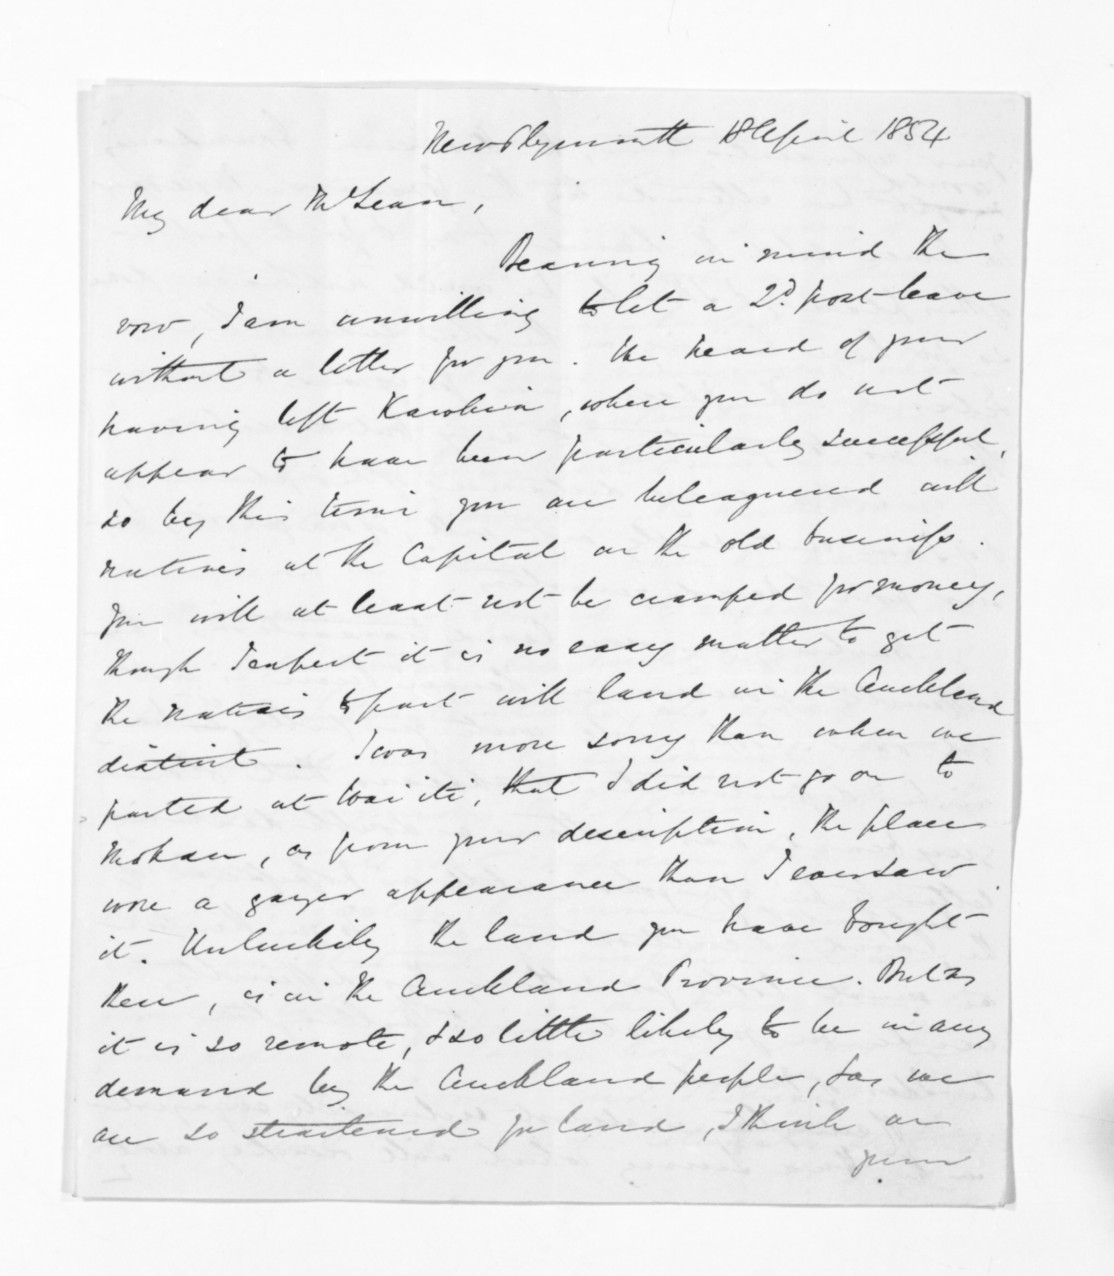 New Plymouth 18 April 1854
My dear McLean,
Bearing in mind the
vow, I am unwilling to let a 2d. post leave
without a letter for you. We heard of your
having left Kawhia, where you do not
appear to have been particularly successful,
so by this time you are beleaguered with
natives at the Capital on the old business.
You will at least not be cramped for money,
though I expect it is no easy matter to get
the natives to part with land in the Auckland
district. I was more sorry than when we
parted at Waiiti, that I did not go on to
Mokau, as from your description, the place
wore a gayer appearance than I ever saw
it. Unluckily the land you have bought
there, is in the Auckland Province. But as
it is so remote, & so little likely to be in any
demand by the Auckland people, & as we
are so straitened for land, I think on
your